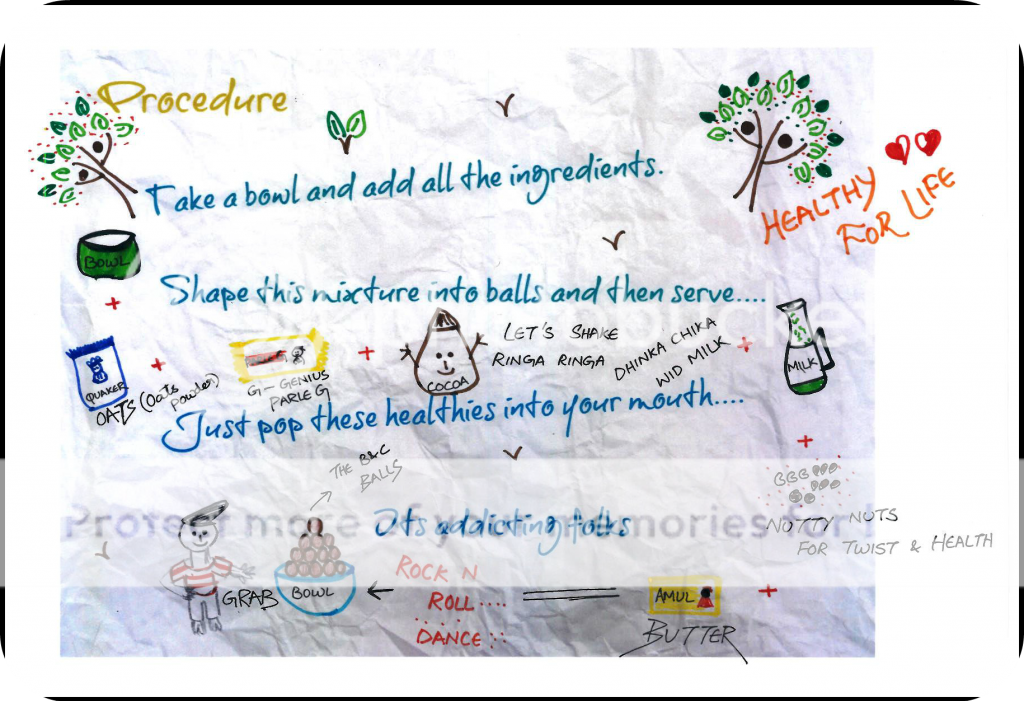 Procedure
Take a bowl and add all the ingredients.
HEALTHY
FOR LIFE
BOWL
Shape this mixture into balls and then serve....
LET'S SHAKE
RINGA RINGA
DHINKA CHIKA
WID MILK
QUAKER
OATS (Oats
powder)
G - GENIUS
PARLE G
COCOA
MILK
Just pop these healthies into your mouth....
THE B&C
BALLS
Protect more of your memories for
Its addicting folks
NUTTY NUTS
FOR TWIST & HEALTH
GRAB
BOWL
ROCK N
ROLL....
DANCE
AMUL
BUTTER